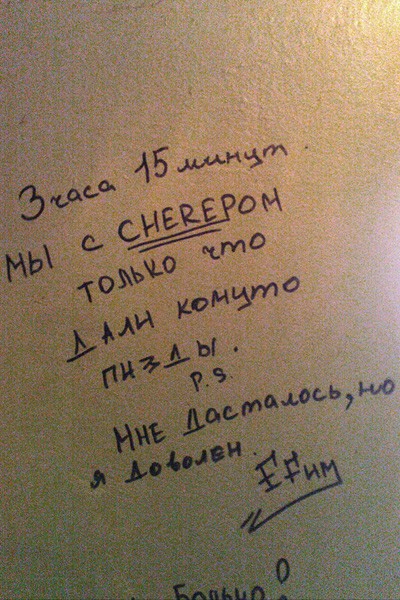 3 часа 15 минут.
МЫ С CHEREPOM
ТОЛЬКО ЧТО
ДАЛИ КОМУТО
ПИЗДЫ.
P.S.
МНЕ ДАСТАЛОСЬ, НО
Я ДОВОЛЕН.
ЕFим
Больно